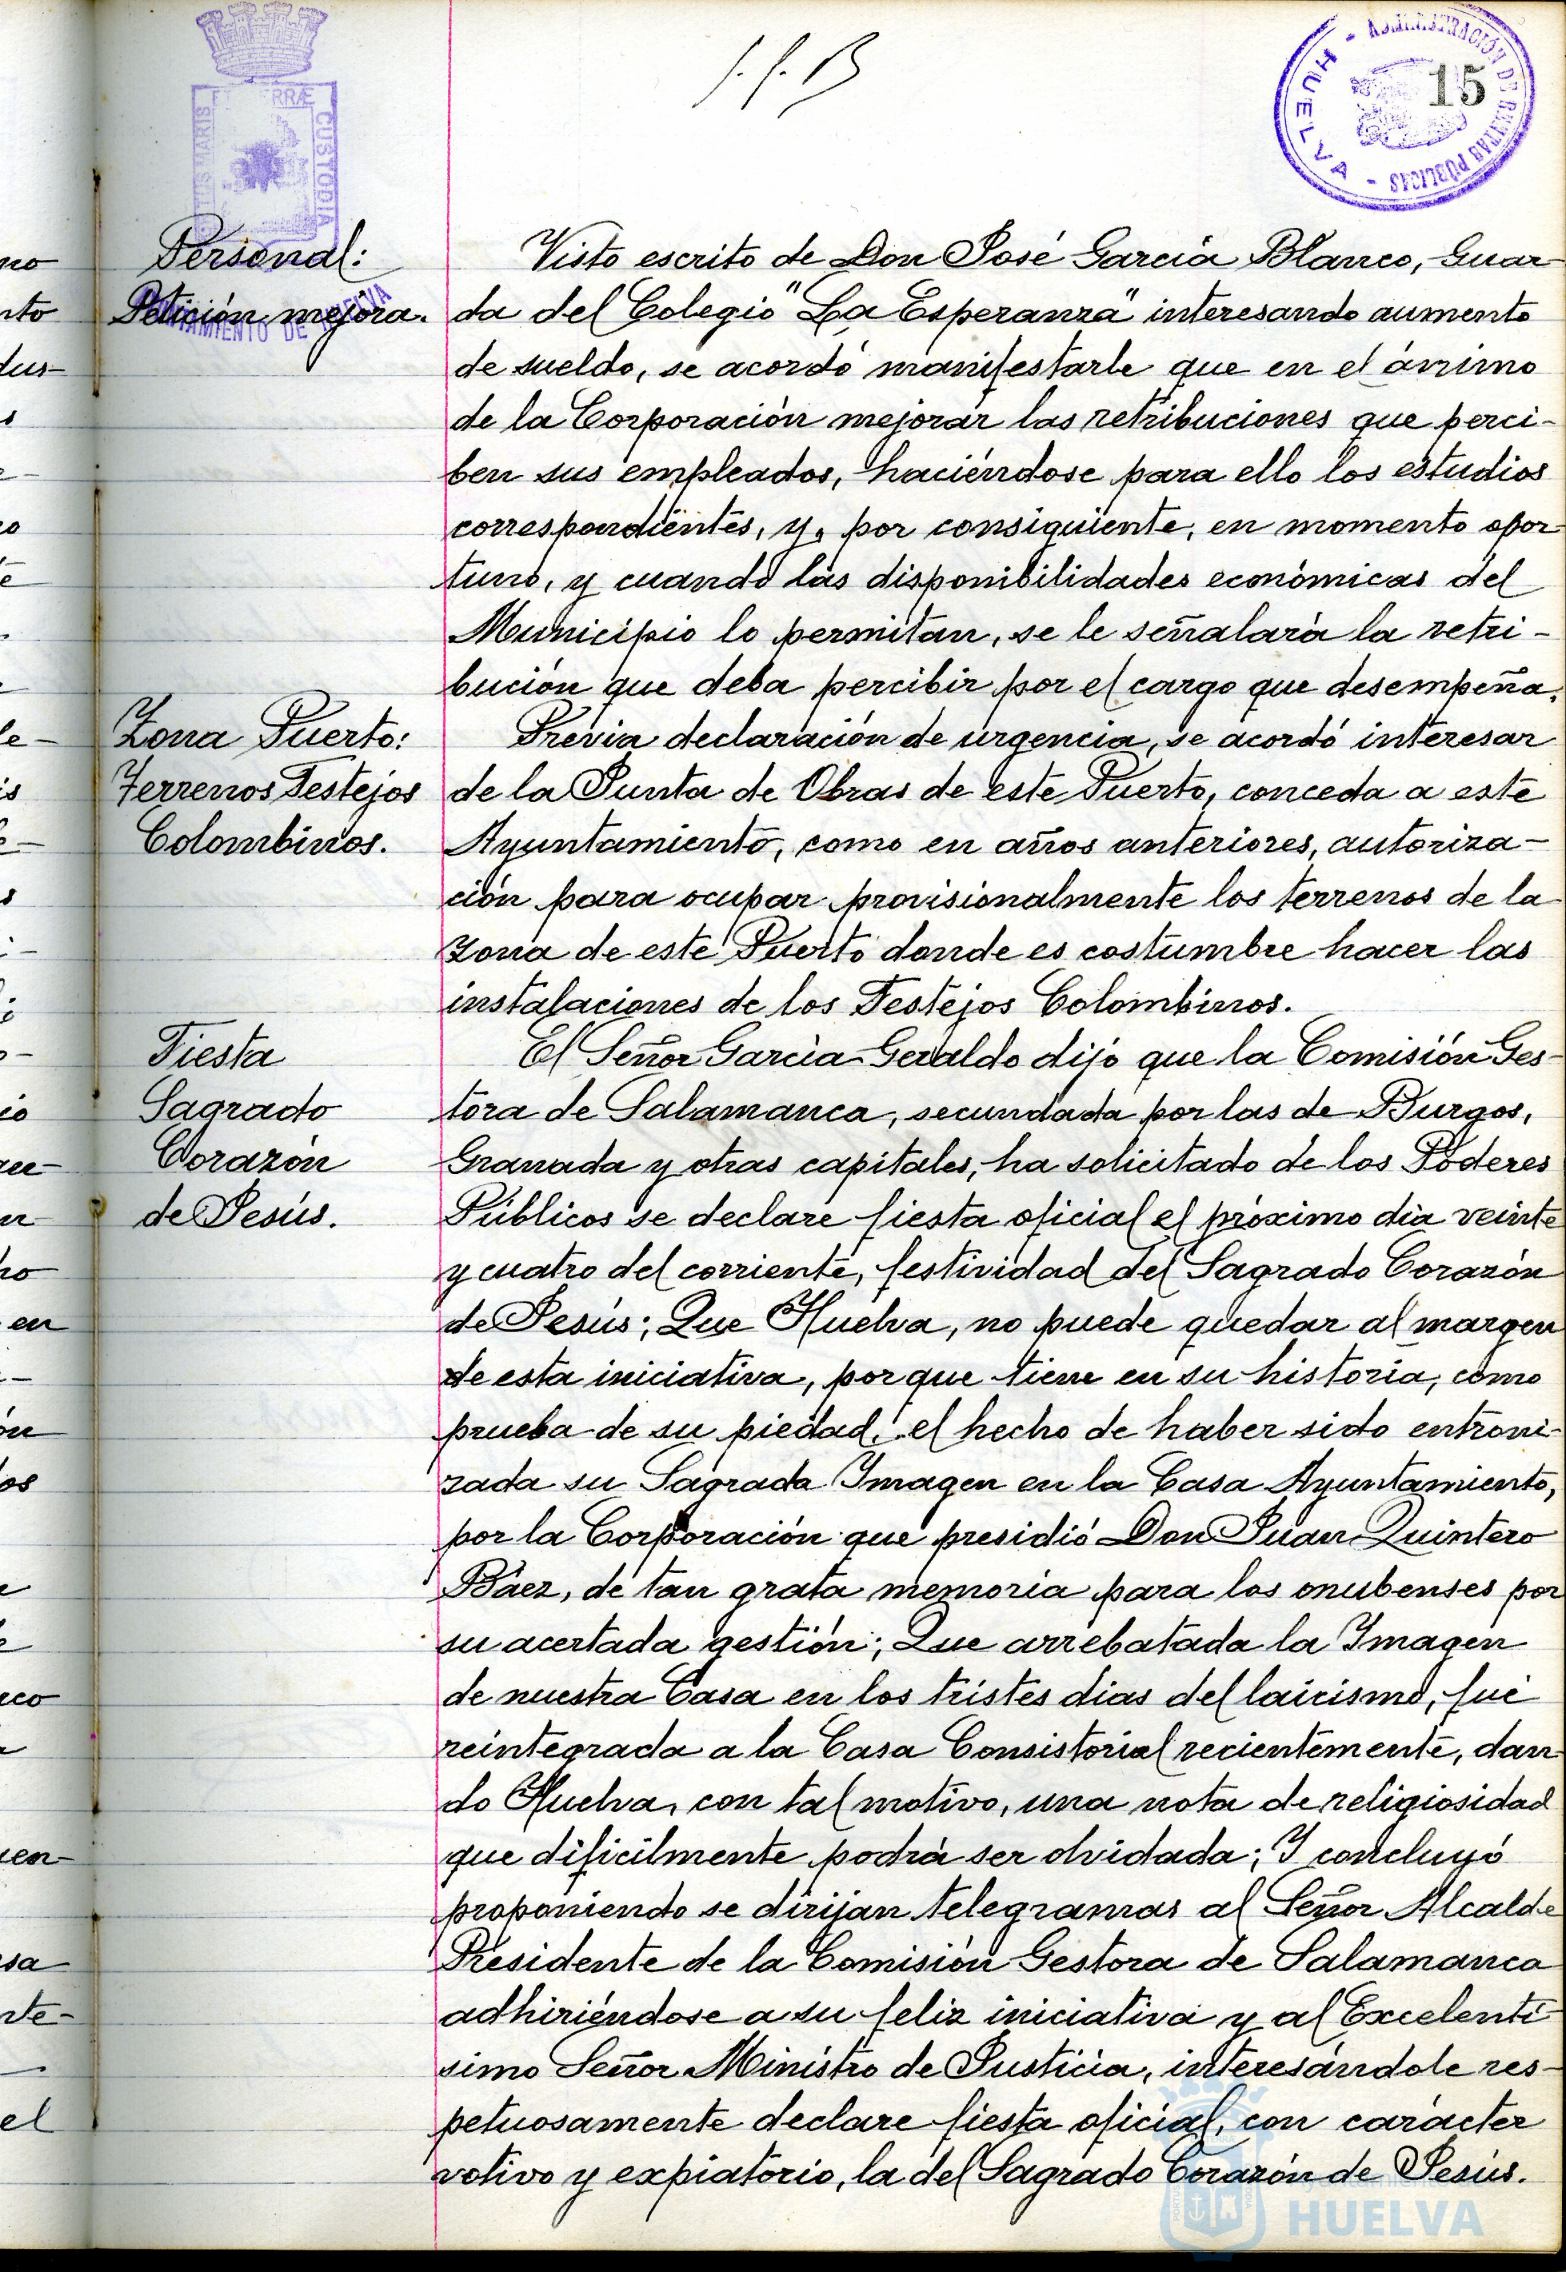 15
ADMINISTRACIÓN DE RENTAS PÚBLICAS - HUELVA -
PORTUS MARIS ET TERRÆ CUSTODIA
AYUNTAMIENTO DE HUELVA
Personal:
Petición mejora.
Visto escrito de Don José García Blanco, Guar-
da del Colegio "La Esperanza" interesando aumento
de sueldo, se acordó manifestarle que en el ánimo
de la Corporación mejorar las retribuciones que perci-
ben sus empleados, haciéndose para ello los estudios
correspondientes, y, por consiguiente, en momento opor-
tuno, y cuando las disponibilidades económicas del
Municipio lo permitan, se le señalará la retri-
bución que deba percibir por el cargo que desempeña.
Zona Puerto:
Terrenos Festejos
Colombinos.
Previa declaración de urgencia, se acordó interesar
de la Junta de Obras de este Puerto, conceda a este
Ayuntamiento, como en años anteriores, autoriza-
ción para ocupar provisionalmente los terrenos de la
zona de este Puerto donde es costumbre hacer las
instalaciones de los Festejos Colombinos.
Fiesta
Sagrado
Corazón
de Jesús.
El Señor García-Geraldo dijo que la Comisión Ges-
tora de Salamanca, secundada por las de Burgos,
Granada y otras capitales, ha solicitado de los Poderes
Públicos se declare fiesta oficial el próximo día veinte
y cuatro del corriente, festividad del Sagrado Corazón
de Jesús; Que Huelva, no puede quedar al margen
de esta iniciativa, porque tiene en su historia, como
prueba de su piedad, el hecho de haber sido entroni-
zada su Sagrada Imagen en la Casa Ayuntamiento,
por la Corporación que presidió Don Juan Quintero
Báez, de tan grata memoria para los onubenses por
su acertada gestión; Que arrebatada la Imagen
de nuestra Casa en los tristes dias del laicismo, fué
reintegrada a la Casa Consistorial recientemente, dan-
do Huelva, con tal motivo, una nota de religiosidad
que dificilmente podrá ser olvidada; Y concluyó
proponiendo se dirijan telegramas al Señor Alcalde
Presidente de la Comisión Gestora de Salamanca
adhiriéndose a su feliz iniciativa y al Excelentí-
simo Señor Ministro de Justicia, interesándole res-
petuosamente declare fiesta oficial, con carácter
votivo y expiatorio, la del Sagrado Corazón de Jesús.
Ayuntamiento de
HUELVA